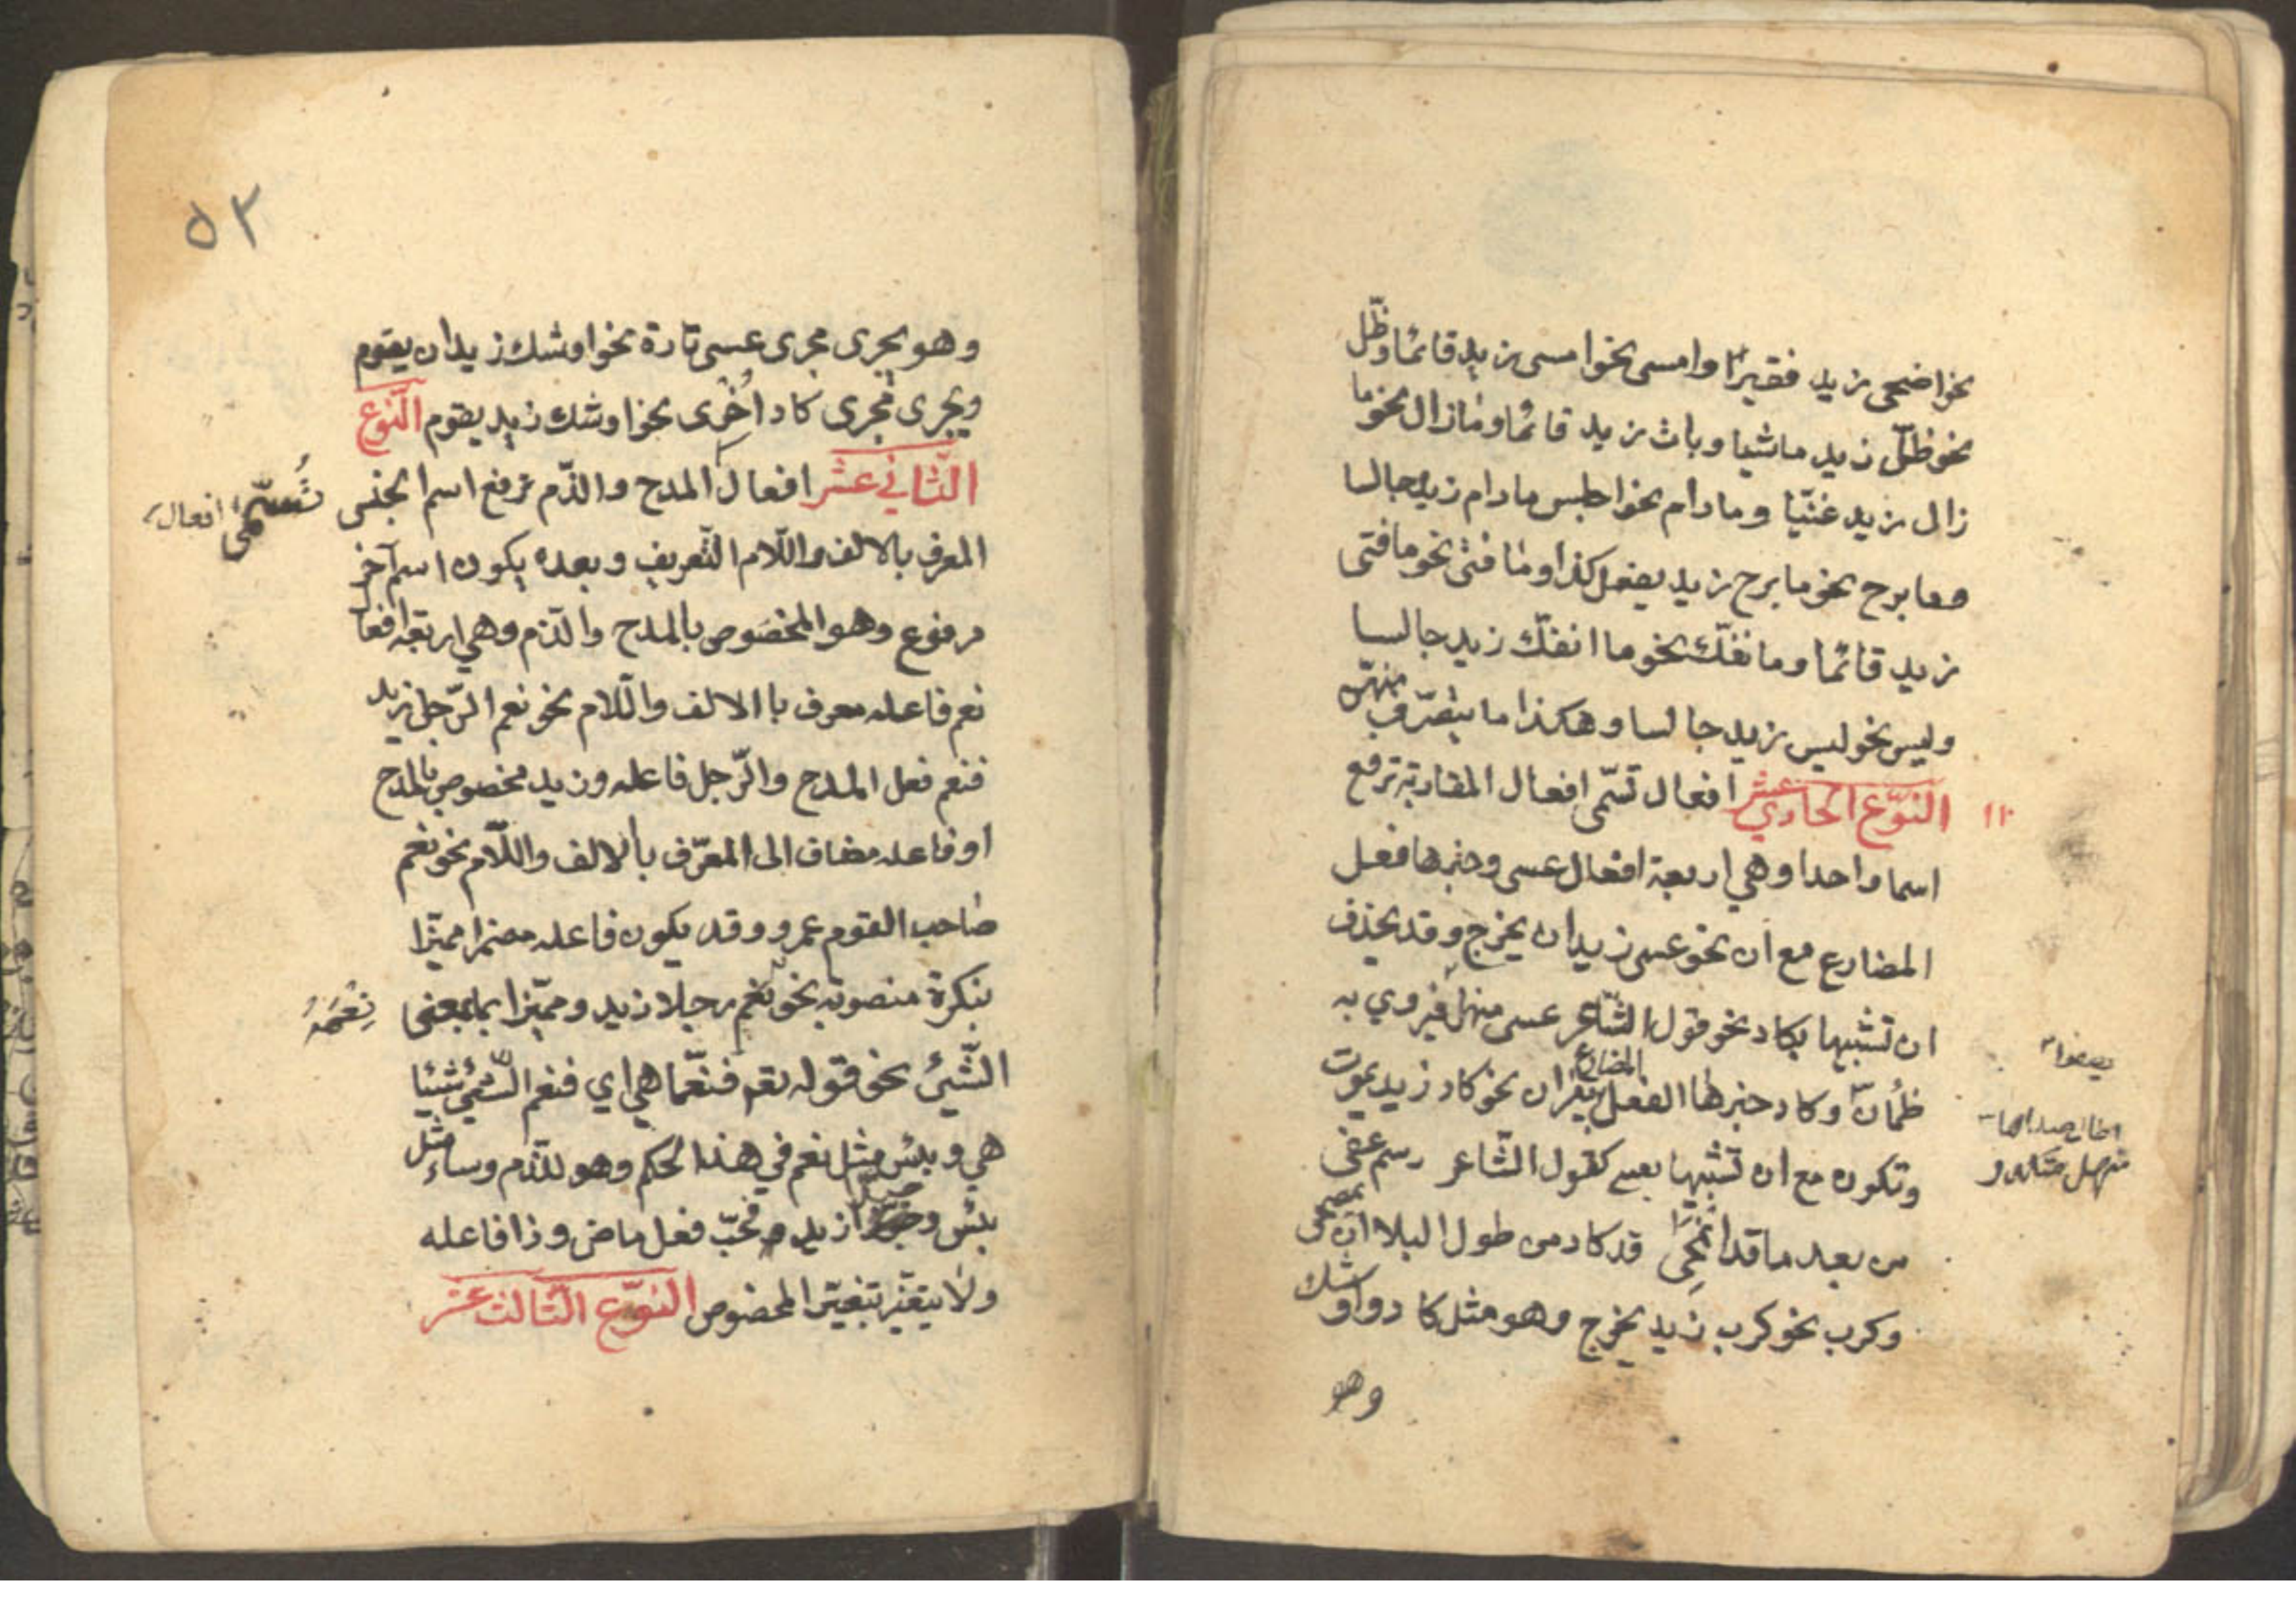 نحو اضحى زيد فقيرا وامسى نحو امسى زيد قائما وظلّ
نحو ظلّ زيد ماشيا وبات زيد قائما وما زال نحو ما
زال زيد غنيّا وما دام نحو اجلس ما دام زيد جالسا
وما برح نحو ما برح زيد يفعل كذا وما فتئ نحو ما فتى
زيد قائما وما نفكّ نحو ما انفكّ زيد جالسا
وليس نحو ليس زيد جالسا وهكذا ما يتصرّف منهنّ
١١ النّوع الحادي عشر افعال تسمّى افعال المقاربة ترفع
اسما واحدا وهي اربعة افعال عسى وخبرها فعل
المضارع مع ان نحو عسى زيد ان يخرج وقد يحذف
ان تشبيها بكاد نحو قول الشّاعر عسى منهل فيروي به
ظمأن وكاد خبرها الفعل المضارع بغير ان نحو كاد زيد يموت
وتكون مع ان تشبيها بعسى كقول الشّاعر رسم عفى
من بعد ما قد انمحى قد كاد من طول البلا ان يمصحى
وكرب نحو كرب زيد يخرج وهو مثل كاد واوشك
وهو
٥٢
وهو يجرى مجرى عسى تارة نحو اوشك زيد ان يقوم
ويجرى مجرى كاد اخرى نحو اوشك زيد يقوم النّوع
الثّاني عشر افعال المدح والذّم ترفع اسم الجنس
تُسمّى افعال
المعرف بالالف واللّام التّعريف وبعده يكون اسم آخر
مرفوع وهو المخصوص بالمدح والذّم وهي اربعة افعا
نعم فاعله معرف باالالف واللّام نحو نعم الرّجل زيد
فنعم فعل المدح والرّجل فاعله وزيد مخصوص بالمدح
او فاعله مضاف الى المعرّف بالالف واللّام نحو نعم
صاحب القوم عمرو وقد يكون فاعله مضمرا مميّزا
بنكرة منصوبة نحو نعم رجلا زيد ومميّزا بما بمعنى
نِعْمَهُ
الشّيئ نحو قوله تعم فنعّما هي اي فنعم الشّيئ شيئا
هي وبئس مثل نعم في هذا الحكم وهو للذّم وساء مثل
بئس وحبّذا زيد فحبّ فعل ماض وذا فاعله
ولا يتغيّر بتغيّر المخصوص النّوع الثّالث عشر